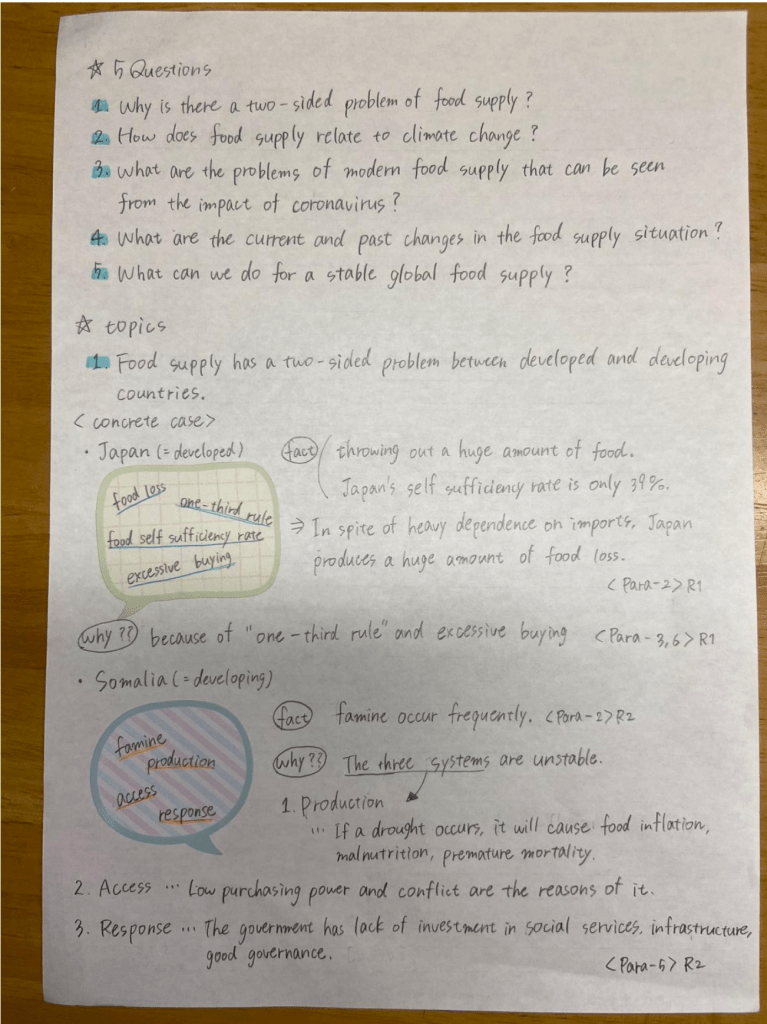 ☆ 5 Questions
1. Why is there a two-sided problem of food supply?
2. How does food supply relate to climate change?
3. What are the problems of modern food supply that can be seen
from the impact of coronavirus?
4. What are the current and past changes in the food supply situation?
5. What can we do for a stable global food supply?
☆ topics
1. Food supply has a two-sided problem between developed and developing
countries.
< concrete case>
・Japan (= developed)
food loss
one-third rule
food self sufficiency rate
excessive buying
fact
throwing out a huge amount of food.
Japan's self sufficiency rate is only 39%.
⇒ In spite of heavy dependence on imports, Japan
produces a huge amount of food loss.
< Para-2> R1
why?? because of "one-third rule" and excessive buying <Para-3,6> R1
・Somalia (= developing)
famine
production
access
response
fact famine occur frequently. <Para-2> R2
why?? The three systems are unstable.
1. Production
… If a drought occurs, it will cause food inflation,
malnutrition, premature mortality.
2. Access … Low purchasing power and conflict are the reasons of it.
3. Response … The government has lack of investment in social services, infrastructure,
good governance.
<Para-5> R2